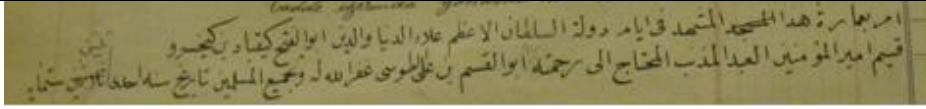 امر بعمارة هذا المسجد المشهد فى ايام دولة السلطان الاعظم علاء الدنيا والدين ابو الفتح كيقباد بن كيخسرو
قسيم امير المؤمنين العبد المذنب المحتاج الى رحمته ابو القسم بن على الطوسى غفر الله له ولجميع المسلمين تاريخ سنه احد ثلاثين ستمايه